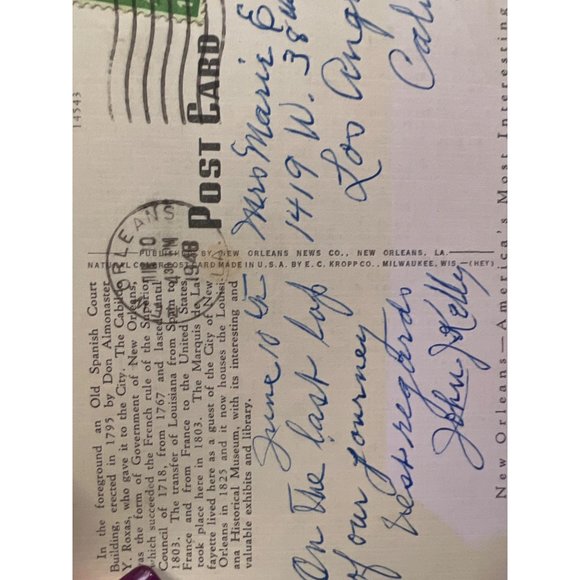 In the foreground an Old Spanish Court
Building, erected in 1795 by Don Almonaster
Y. Roxas, who gave it to the City. The Cabildo
was the form of Government of New Orleans,
which succeeded the French rule of the Superior
Council of 1718, from 1767 and lasted until
1803. The transfer of Louisiana from Spain to
France and from France to the United States
took place here in 1803. The Marquis de La-
fayette lived here as a guest of the City of New
Orleans in 1825 and it now houses the Louisi-
ana Historical Museum, with its interesting and
valuable exhibits and library.
June 10th
On The last lap
of our journey
Best regards
John J Kelly
PUBLISHED BY NEW ORLEANS NEWS CO., NEW ORLEANS, LA.
NATURAL COLOR POST CARD MADE IN U. S. A. BY E. C. KROPP CO., MILWAUKEE, WIS.—(HEY)
14543
ORLEANS
JUN 10
430 PM
1948
POST CARD
Mrs Marie E
1419 W. 38
Los Ang
Cali
New Orleans—America's Most Interesting